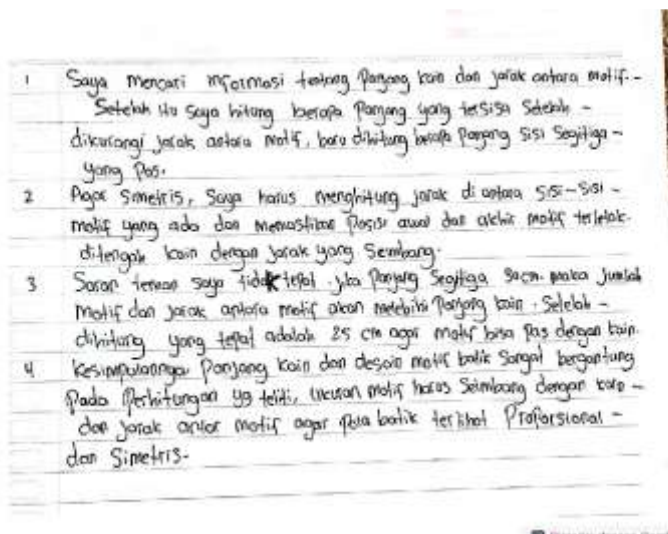 1 Saya mencari informasi tentang Panjang kain dan jarak antara motif.-
Setelah itu saya hitung berapa Panjang yang tersisa Setelah -
dikurangi jarak antara motif, baru dihitung berapa Panjang sisi Segitiga -
yang Pas.
2 Agar Simetris, Saya harus menghitung jarak di antara sisi-sisi -
motif yang ada dan memastikan Posisi awal dan akhir motif terletak.
ditengah kain dengan jarak yang Seimbang.
3 Saran teman saya tidak tepat. Jika Panjang Segitiga 30cm. maka jumlah
motif dan jarak antara motif akan melebihi Panjang kain. Setelah -
dihitung yang tepat adalah 25 cm agar motif bisa Pas dengan kain.
4 Kesimpulannya Panjang kain dan desain motif batik Sangat bergantung
Pada Perhitungan yg teliti, Ukuran motif harus Seimbang dengan kain -
dan jarak antar motif agar Pola batik terlihat Proporsional -
dan Simetris-